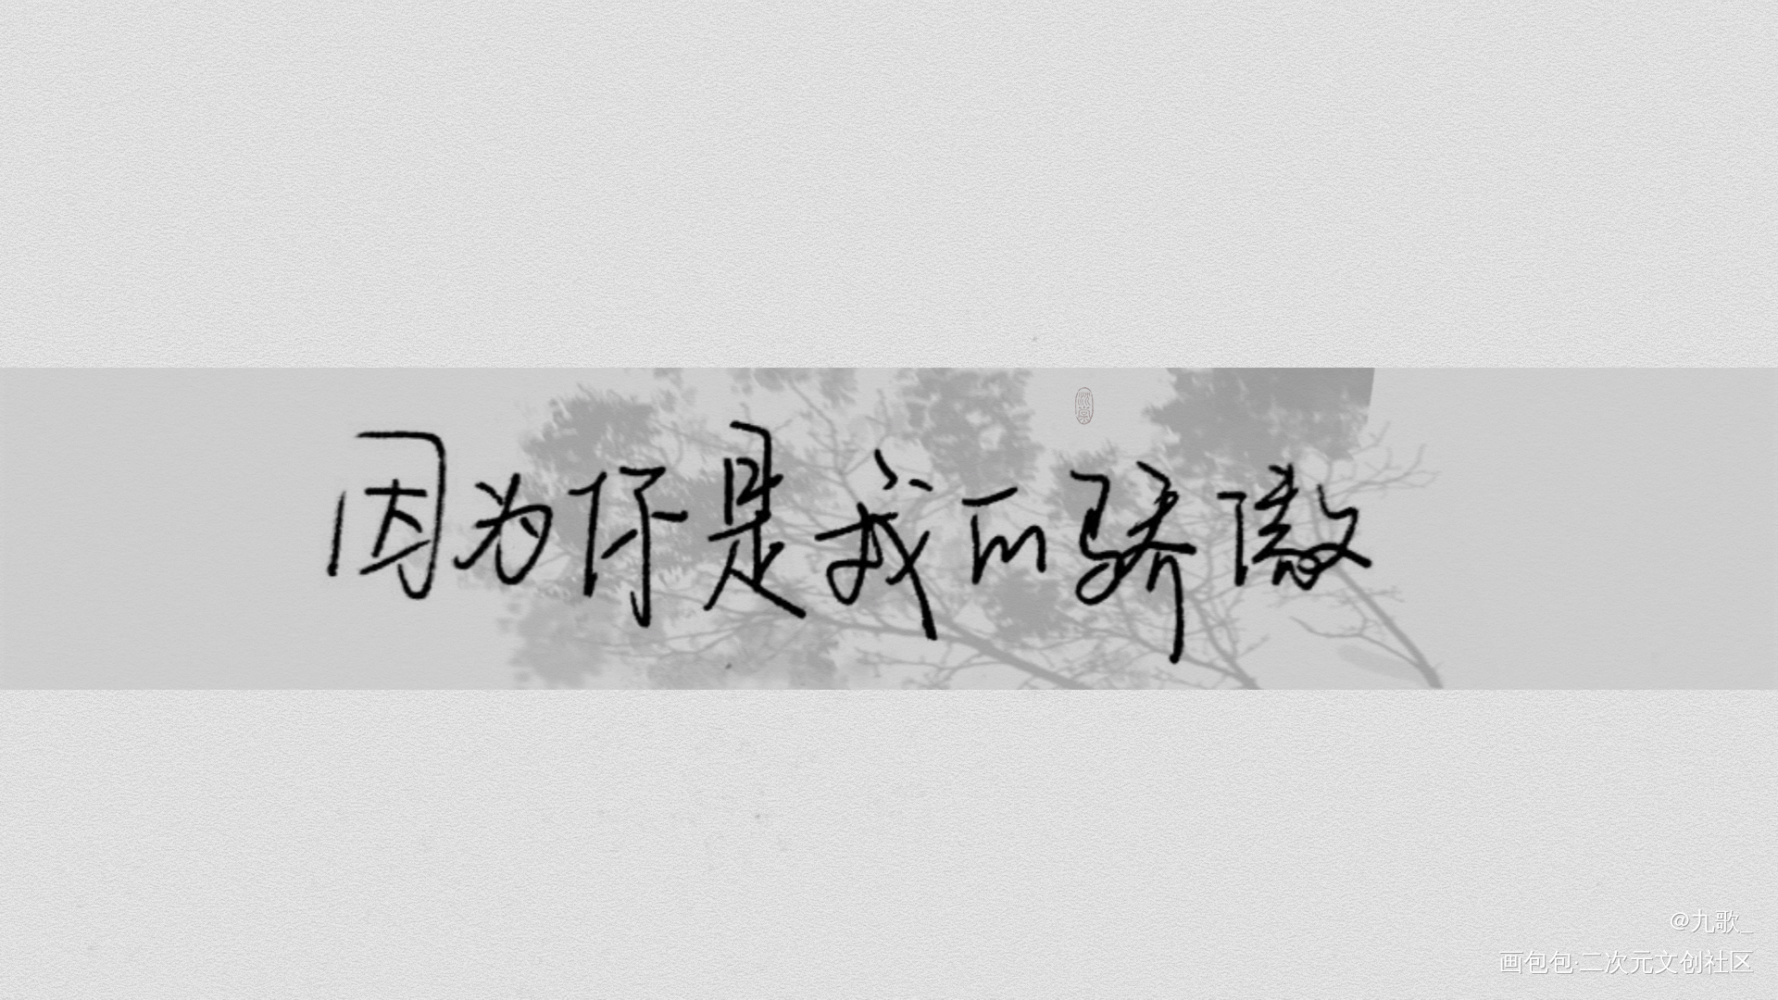 因为你是我的骄傲
@九歌_
画包包·二次元文创社区